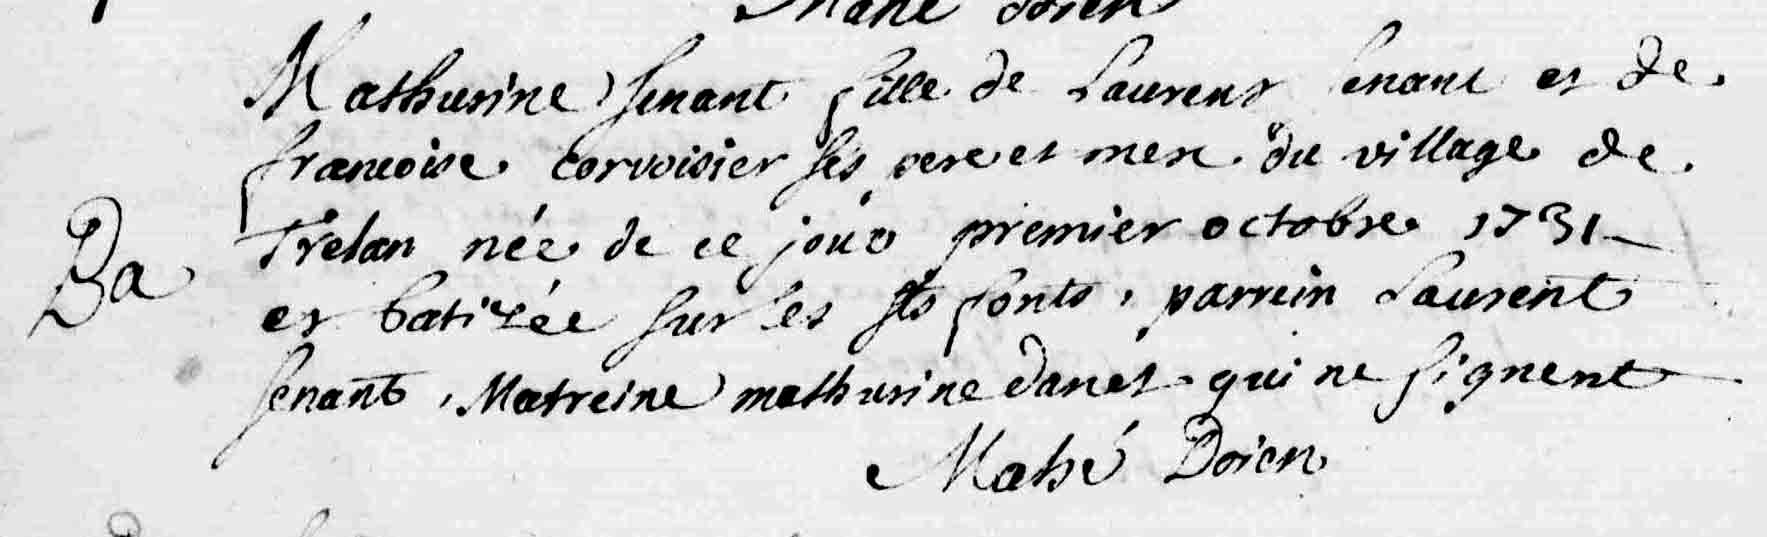 Mahé doien
Mathurine senant fille de Laurent senant et de
francoise corvoisier ses pere et mere du village de
Ba
Trelan née de ce jour premier octobre 1731
et batizée sur les sts fonts, parrein Laurent
senant, Matreine mathurine danet qui ne signent
Mahé Doien